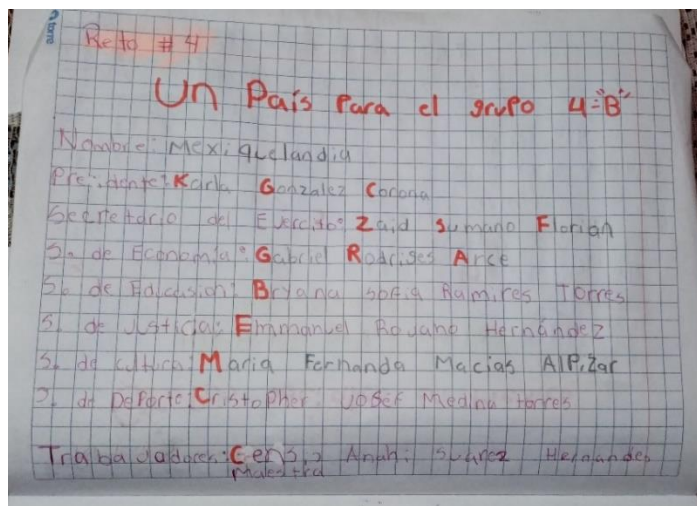 torre
Reto # 4
Un País Para el grupo 4="B"
Nombre: Mexiquelandia
Presidente: Karla Gonzalez Corona
Secretario del Ejercito: Zaid Sumano Florian
S. de Economia: Gabriel Rodriges Arce
S. de Bryana Sofia Ramires Torres
S. de Justicia: Emmanuel Rojano Hernández
S. de cultura Maria Fernanda Macias AlPizar
S. de DePorte: Cristopher Josef Medina torres
Anahi Suarez Hernandez
Maestra